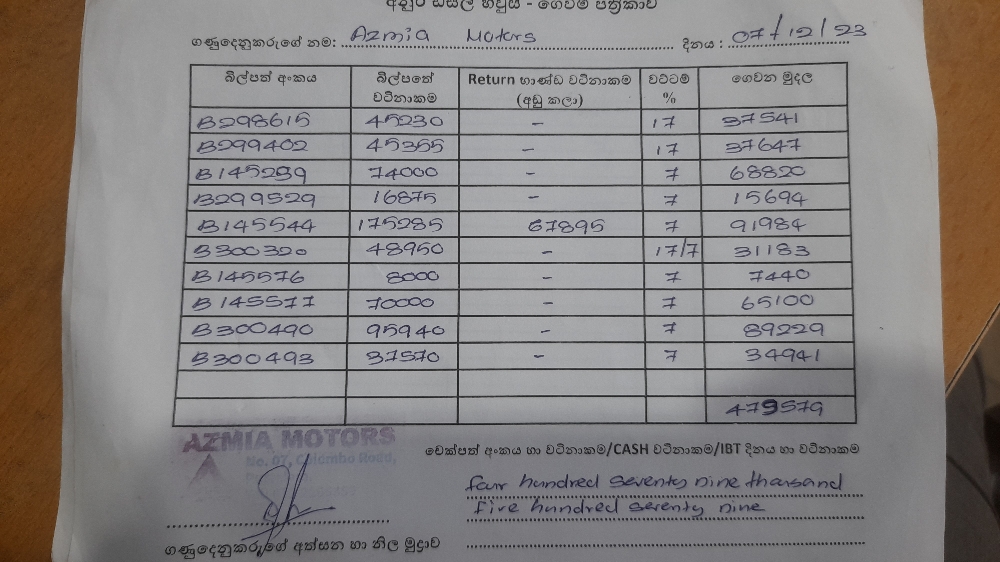 අනුර ඩීසල් හවුස් - ගෙවීම් පත්‍රිකාව
ගණුදෙනුකරුගේ නම: Azmia Motors දිනය : 07/12/23
බිල්පත් අංකය බිල්පතේ වටිනාකම Return භාණ්ඩ වටිනාකම (අඩු කලා) වට්ටම % ගෙවන මුදල
B298615 45230 - 17 37541
B299402 45355 - 17 37647
B145239 74000 - 7 68820
B299529 16875 - 7 15694
B145544 175285 67895 7 91984
B300320 48950 - 17/7 31183
B145576 8000 - 7 7440
B145577 70000 - 7 65100
B300490 95940 - 7 89229
B300493 37570 - 7 34941
479579
AZMIA MOTORS
No. 07, Colombo Road,
චෙක්පත් අංකය හා වටිනාකම/CASH වටිනාකම/IBT දිනය හා වටිනාකම
four hundred seventy nine thousand
five hundred seventy nine
ගණුදෙනුකරුගේ අත්සන හා නිල මුද්‍රාව